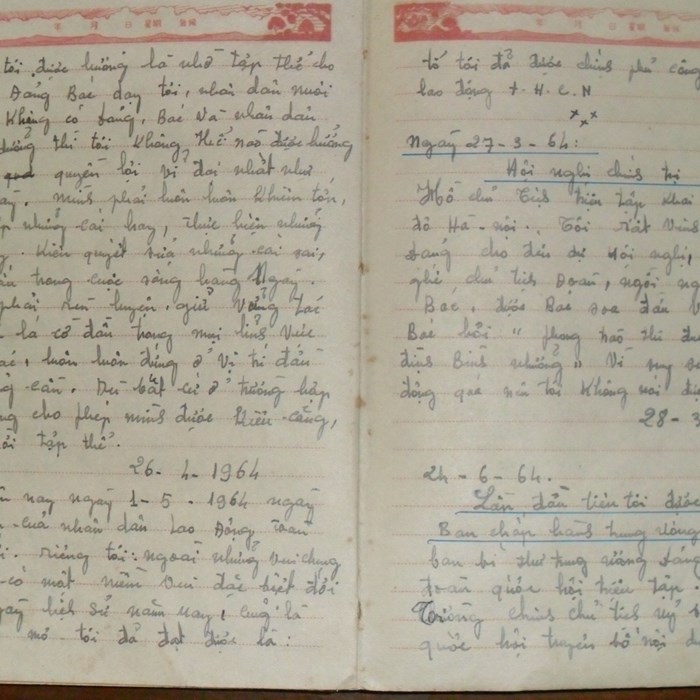 tôi được hưởng là nhờ tập thể cho
Đảng Bác dạy tôi, nhân dân nuôi
Không có Đảng, Bác và nhân dân
thì tôi Không thể nào được hưởng
quyền lợi vĩ đại nhất như
mình phải luôn luôn khiêm tốn,
những cái hay, thực hiện những
Kiên quyết sửa những cái sai,
trong cuộc sống hàng Ngày.
phải rèn luyện, giữ vững tác
là cờ đầu trong mọi lĩnh vực
luôn luôn đứng ở vị trí đầu
Dù bất cứ ở trường hợp
cho phép mình được Kiêu căng,
tập thể.
26 - 4 - 1964
nay ngày 1 - 5 - 1964 ngày
của nhân dân Lao Động toàn
riêng tôi: ngoài những vui chung
có một niềm vui đặc biệt đối
lịch sử năm nay, cũng là
mà tôi đã đạt được là:
tố tôi đã được chính phủ công
lao động X.H.C.N
Ngày 27 - 3 - 64:
Hội nghị chính trị
Hồ chủ Tịch triệu tập Khai
đô Hà - nội. Tôi rất Vinh
Đảng cho đến dự Hội nghị,
ghế chủ tịch Đoàn, ngồi
Bác, được Bác
Bác hỏi " phong trào thi đua
nhưỡng" Vì suy
động quá nên tôi Không nói
28 - 3
24 - 6 - 64.
Lần đầu tiên tôi được
Ban chấp hành trung ương
ban bí thư trung ương Đảng
Đoàn quốc hội triệu tập.
Trường chinh chủ tịch
quốc hội truyên bố nội